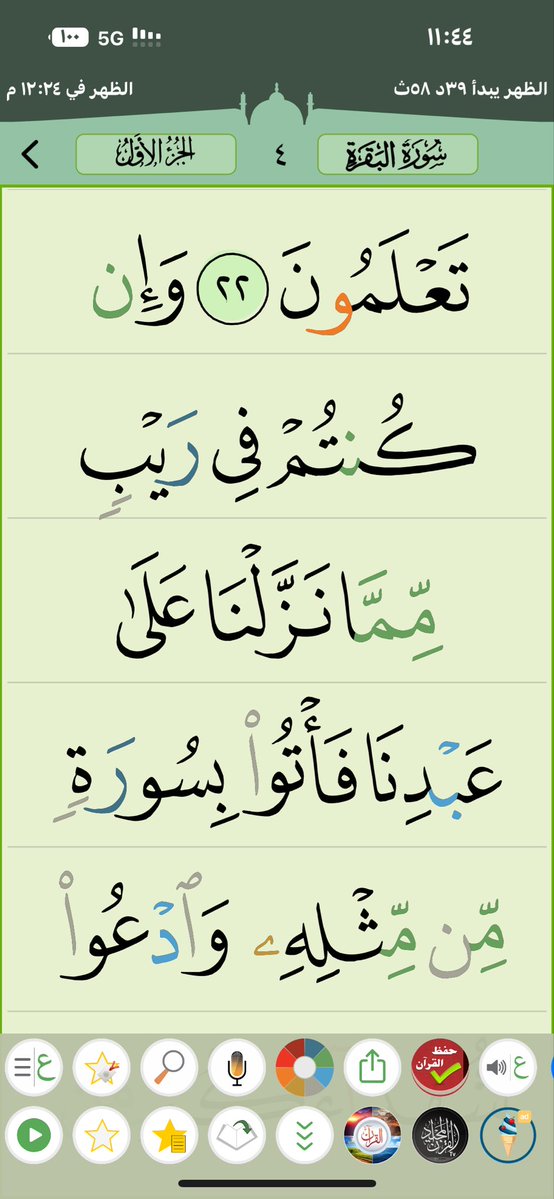 ١١:٤٤ 5G ١٠٠
الظهر يبدأ ٣٩د ٥٨ث الظهر في ١٢:٢٤ م
سُورَةُ البَقَرَةِ ٤ الجُزْءُ الأَوَّلُ
تَعْلَمُونَ ٢٢ وَإِن
كُنتُمْ فِي رَيْبٍ
مِّمَّا نَزَّلْنَا عَلَىٰ
عَبْدِنَا فَأْتُوا۟ بِسُورَةٍ
مِّن مِّثْلِهِۦ وَٱدْعُوا۟
ع حفظ القرآن ع
القرآن ad